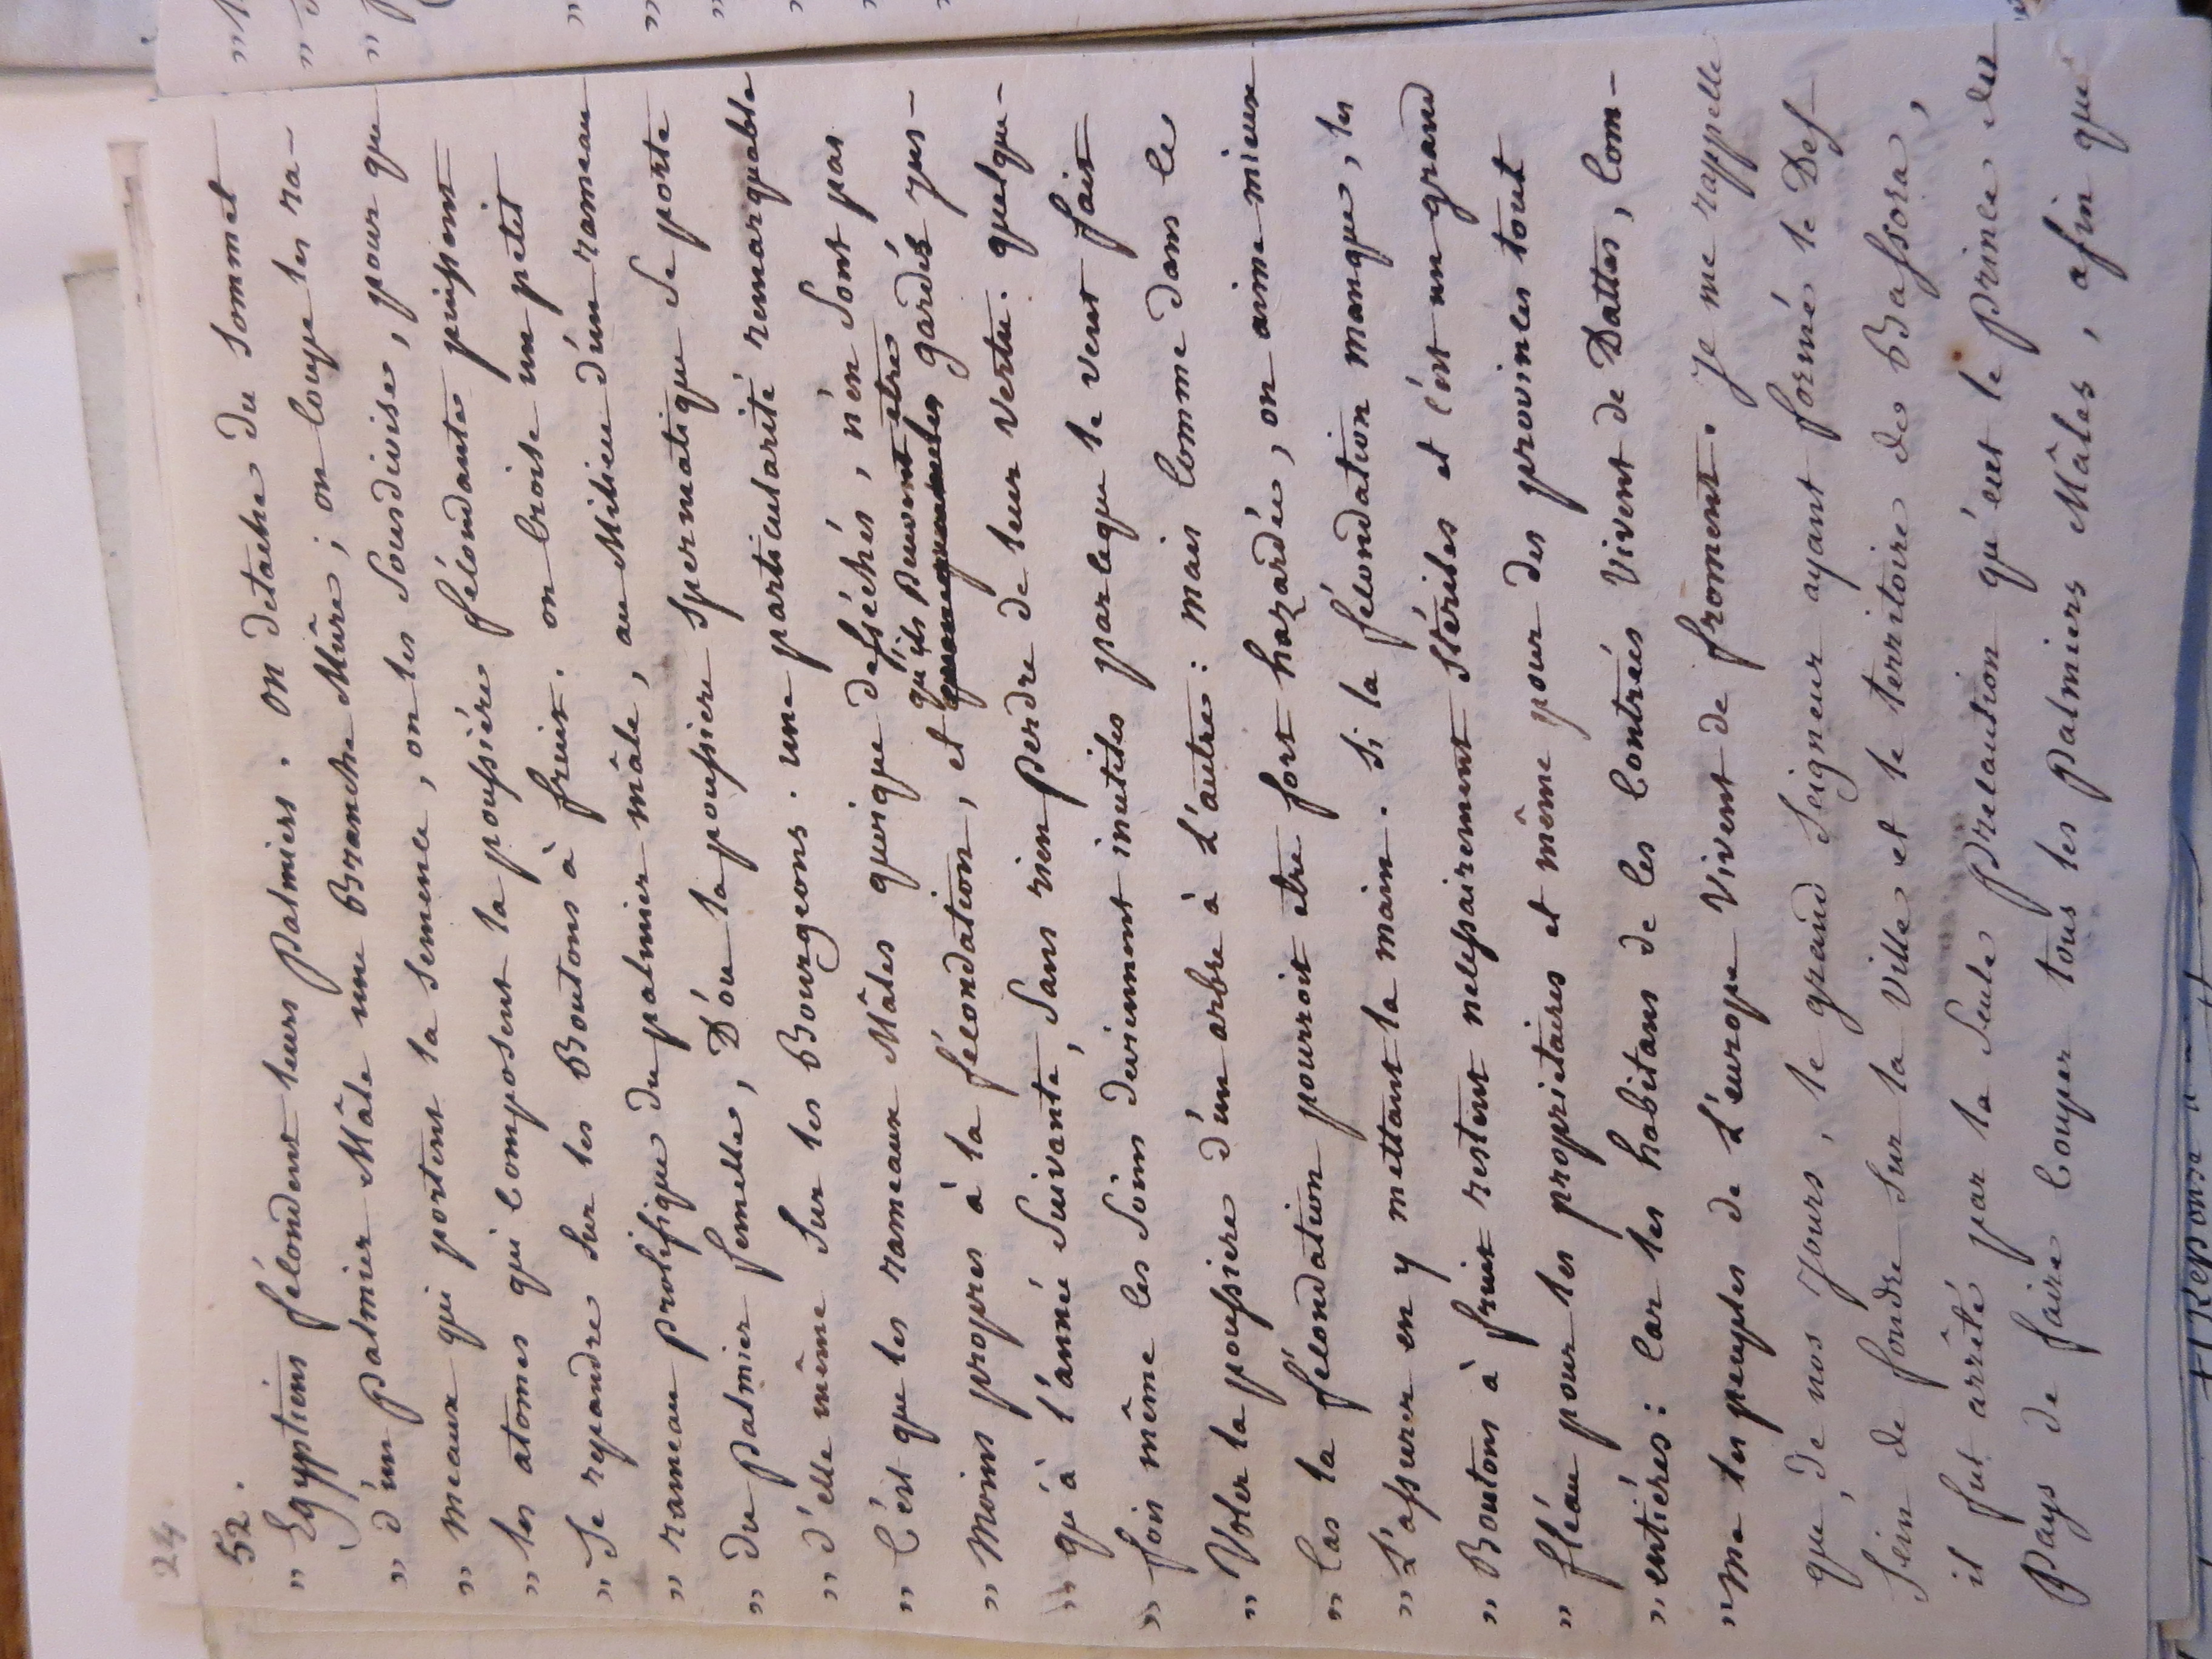 24.
52.
" Egyptiens fécondent leurs palmiers. on detache du sommet
" d'un palmier Mâle une Branche Mûre ; on coupe les ra-
" meaux qui portent la semence, on les sousdivise, pour que
" les atomes qui composent la poussière fécondante puissent
" se repandre sur les Boutons à fruit. on croise un petit
" rameau prolifique du palmier mâle, au Milieu d'un rameau
" du palmier femelle, D'ou la poussiere spermatique se porte
" d'elle même sur les Bourgeons. une particularité remarquable
" C'est que les rameaux Mâles quoique desséchés, n'en sont pas
" Moins propres à la fécondation, et qu'ils peuvent etre gardés jus-
" qu'à l'année suivante, sans rien perdre de leur vertu. quelque-
" fois même ces soins deviennent inutiles parceque le vent fait
" Voler la poussiere d'un arbre à L'autre : mais comme dans ce
" cas la fécondation pourroit etre fort hazardée, on aime mieux
" L'assurer en y mettant la main. Si la fécondation manque, les
" Boutons à fruit restent necessairement stériles et c'est un grand
" fléau pour les proprietaires et même pour des provinces tout
" entières : car les habitans de ces contrées Vivent de Dattes, com-
" me les peuples de L'europe Vivent de froment. Je me rappelle
que, de nos jours, le grand Seigneur ayant formé le Des-
sein de fondre sur la Ville et le territoire de Bassora,
il fut arrêté par la seule précaution qu'eut le prince du
Pays de faire couper tous les palmiers Mâles, afin que